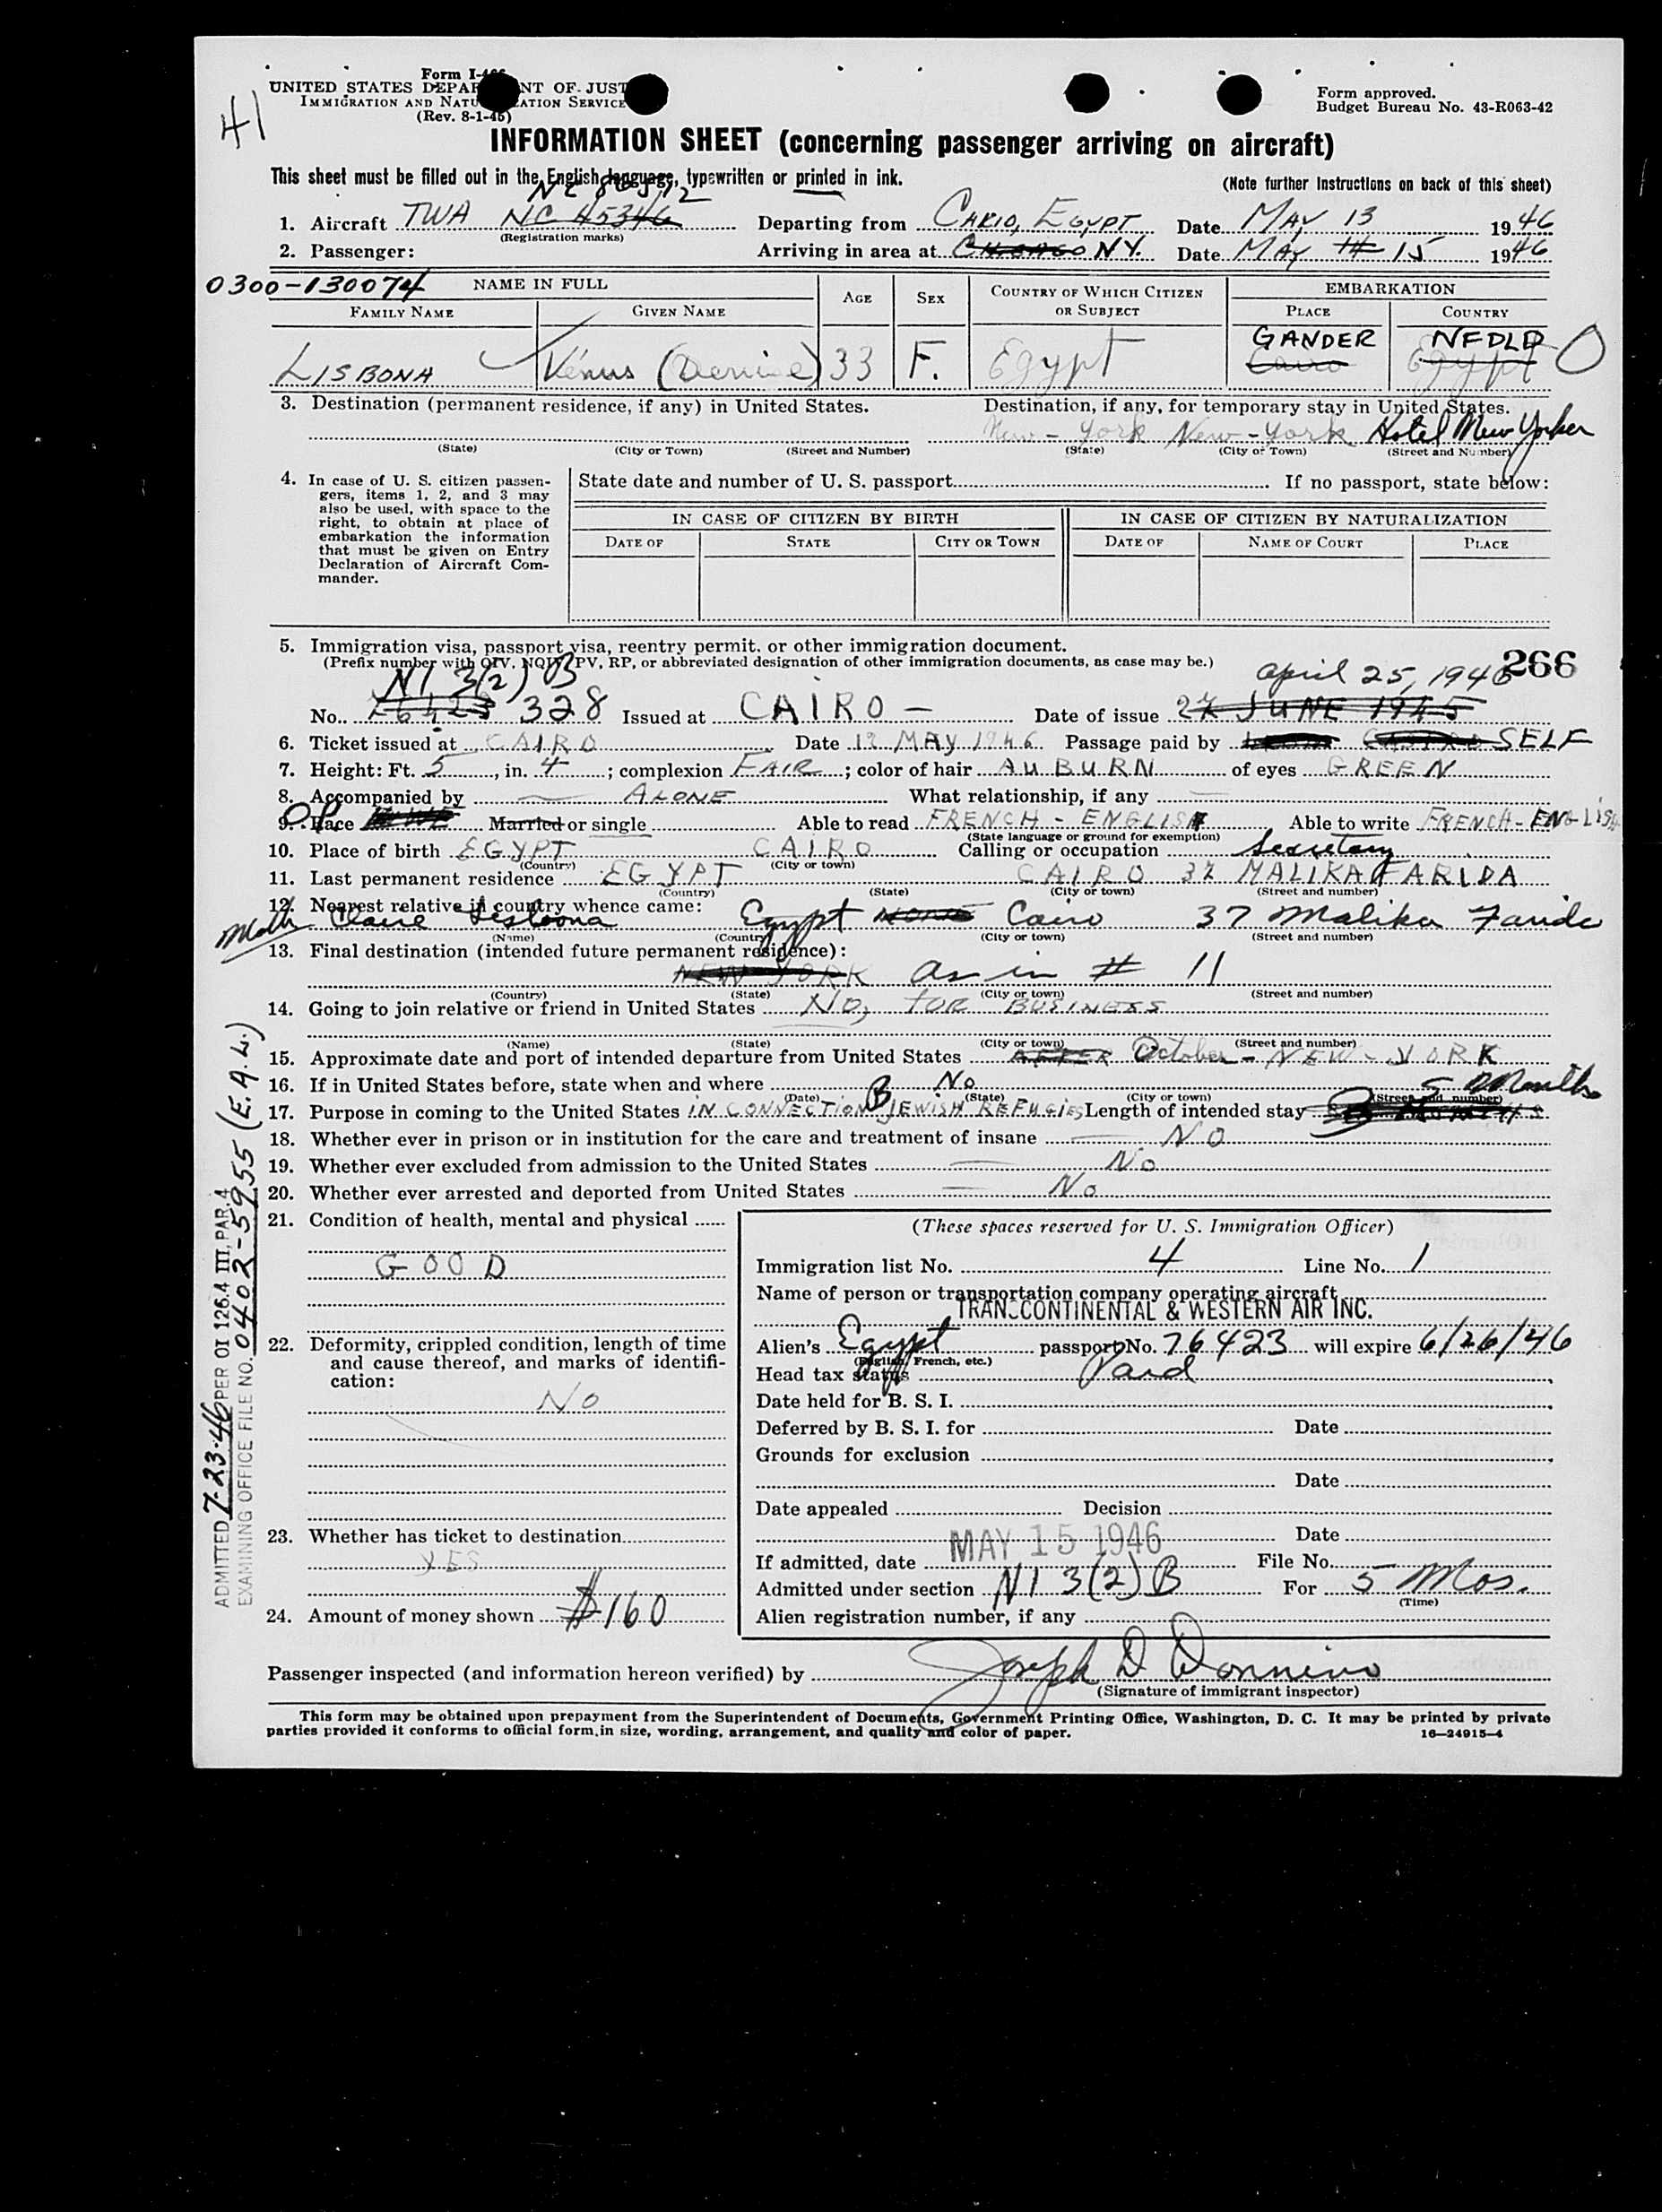 41
Form I-466
UNITED STATES DEPARTMENT OF JUSTICE
IMMIGRATION AND NATURALIZATION SERVICE
(Rev. 8-1-45)
Form approved.
Budget Bureau No. 43-R063-42
INFORMATION SHEET (concerning passenger arriving on aircraft)
This sheet must be filled out in the English language, typewritten or printed in ink.
(Note further instructions on back of this sheet)
1. Aircraft TWA NC 45346 Departing from CARIO, EGYPT Date MAY 13 1946
(Registration marks)
2. Passenger: Arriving in area at CHICAGO N.Y. Date MAY 14 15 1946
0300-130074 NAME IN FULL
AGE SEX COUNTRY OF WHICH CITIZEN OR SUBJECT EMBARKATION
FAMILY NAME GIVEN NAME PLACE COUNTRY
GANDER NFDLD
LISBONA Vénus (Denise) 33 F. Egypt Cairo Egypt O
3. Destination (permanent residence, if any) in United States. Destination, if any, for temporary stay in United States.
New-York New-York Hotel New Yorker
(State) (City or Town) (Street and Number) (State) (City or Town) (Street and Number)
4. In case of U. S. citizen passen-
gers, items 1, 2, and 3 may
also be used, with space to the
right, to obtain at place of
embarkation the information
that must be given on Entry
Declaration of Aircraft Com-
mander.
State date and number of U. S. passport If no passport, state below:
IN CASE OF CITIZEN BY BIRTH IN CASE OF CITIZEN BY NATURALIZATION
DATE OF STATE CITY OR TOWN DATE OF NAME OF COURT PLACE
5. Immigration visa, passport visa, reentry permit, or other immigration document.
(Prefix number with QIV, NQIV, PV, RP, or abbreviated designation of other immigration documents, as case may be.)
NI 3(2) B April 25, 1946 266
No. 76423 328 Issued at CAIRO - Date of issue 27 JUNE 1945
6. Ticket issued at CAIRO Date 12 MAY 1946 Passage paid by SELF
7. Height: Ft. 5, in. 4; complexion FAIR; color of hair AUBURN of eyes GREEN
8. Accompanied by ALONE What relationship, if any
9. Race Married or single Able to read FRENCH - ENGLISH Able to write FRENCH - ENGLISH
(State language or ground for exemption)
10. Place of birth EGYPT CAIRO Calling or occupation Secretary
(Country) (City or town)
11. Last permanent residence EGYPT CAIRO 37 MALIKA FARIDA
(Country) (State) (City or town) (Street and number)
12. Nearest relative in country whence came:
Moth Claire Lisbona Egypt Cairo 37 Malika Farida
(Name) (Country) (City or town) (Street and number)
13. Final destination (intended future permanent residence):
NEW YORK as in # 11
(Country) (State) (City or town) (Street and number)
14. Going to join relative or friend in United States NO, FOR BUSINESS
(Name) (State) (City or town) (Street and number)
15. Approximate date and port of intended departure from United States AFTER October - NEW-YORK
16. If in United States before, state when and where No
(Date) (State) (City or town) (Street and number)
5 Months
17. Purpose in coming to the United States IN CONNECTION B JEWISH REFUGIES Length of intended stay
18. Whether ever in prison or in institution for the care and treatment of insane NO
19. Whether ever excluded from admission to the United States No
20. Whether ever arrested and deported from United States No
21. Condition of health, mental and physical
GOOD
22. Deformity, crippled condition, length of time
and cause thereof, and marks of identifi-
cation:
No
23. Whether has ticket to destination
YES
24. Amount of money shown $160
(These spaces reserved for U. S. Immigration Officer)
Immigration list No. 4 Line No. 1
Name of person or transportation company operating aircraft
TRANSCONTINENTAL & WESTERN AIR INC.
Alien's Egypt passport No. 76423 will expire 6/26/46
(English, French, etc.)
Head tax status Paid
Date held for B. S. I.
Deferred by B. S. I. for Date
Grounds for exclusion
Date
Date appealed Decision
Date
If admitted, date MAY 15 1946 File No.
Admitted under section NI 3(2) B For 5 Mos.
(Time)
Alien registration number, if any
Passenger inspected (and information hereon verified) by Joseph D Donnino
(Signature of immigrant inspector)
This form may be obtained upon prepayment from the Superintendent of Documents, Government Printing Office, Washington, D. C. It may be printed by private
parties provided it conforms to official form, in size, wording, arrangement, and quality and color of paper. 16-24915-4
ADMITTED 7-23-46 PER OI 126.4 III, PAR. 4
EXAMINING OFFICE FILE NO. 0402-5955 (E.A.L.)